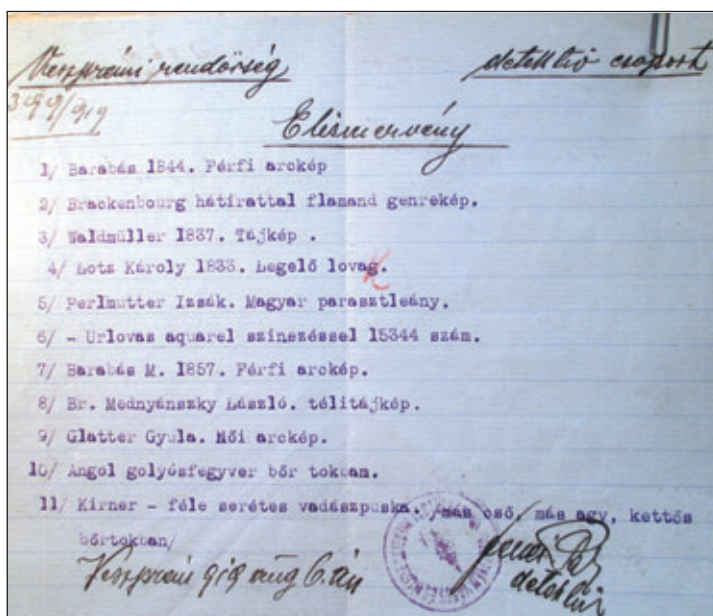 Veszprémi rendőrség
detektiv csoport
399/919
Elismervény
1/ Barabás 1844. Férfi arckép
2/ Brackenbourg hátirattal flamand genrekép.
3/ Waldmüller 1837. Tájkép .
4/ Lotz Károly 1833. Legelő lovak.
5/ Perlmutter Izsák. Magyar parasztleány.
6/ - Urlovas aquarel szinezéssel 15344 szám.
7/ Barabás M. 1857. Férfi arckép.
8/ Br. Mednyánszky László. télitájkép.
9/ Glatter Gyula. Női arckép.
10/ Angol golyósfegyver bőr tokban.
11/ Kirner - féle serétes vadászpuska. /más cső, más agy, kettős
bőrtokban/
Veszprém 919 aug 6.án
detektiv